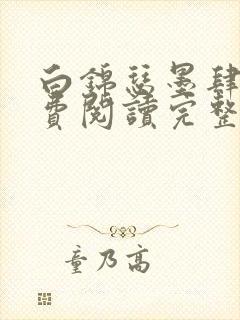 白錦瑟墨肆
費閱讀完整
童乃高